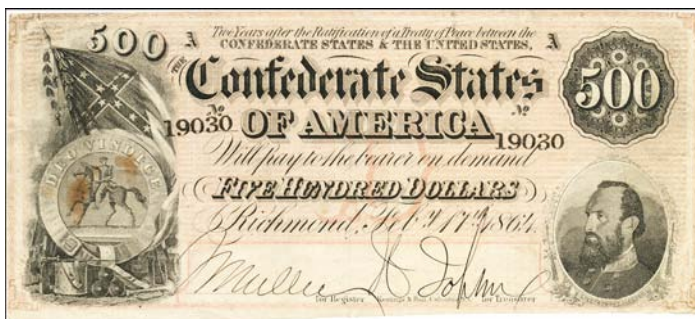 500 A Two Years after the Ratification of a Treaty of Peace between the A
CONFEDERATE STATES & THE UNITED STATES,
500
THE Confederate States
No No
19030 OF AMERICA 19030
Will pay to the bearer on demand
DEO VINDICE
FIVE HUNDRED DOLLARS
Richmond, Feby. 17th 1864.
for Register for Treasurer